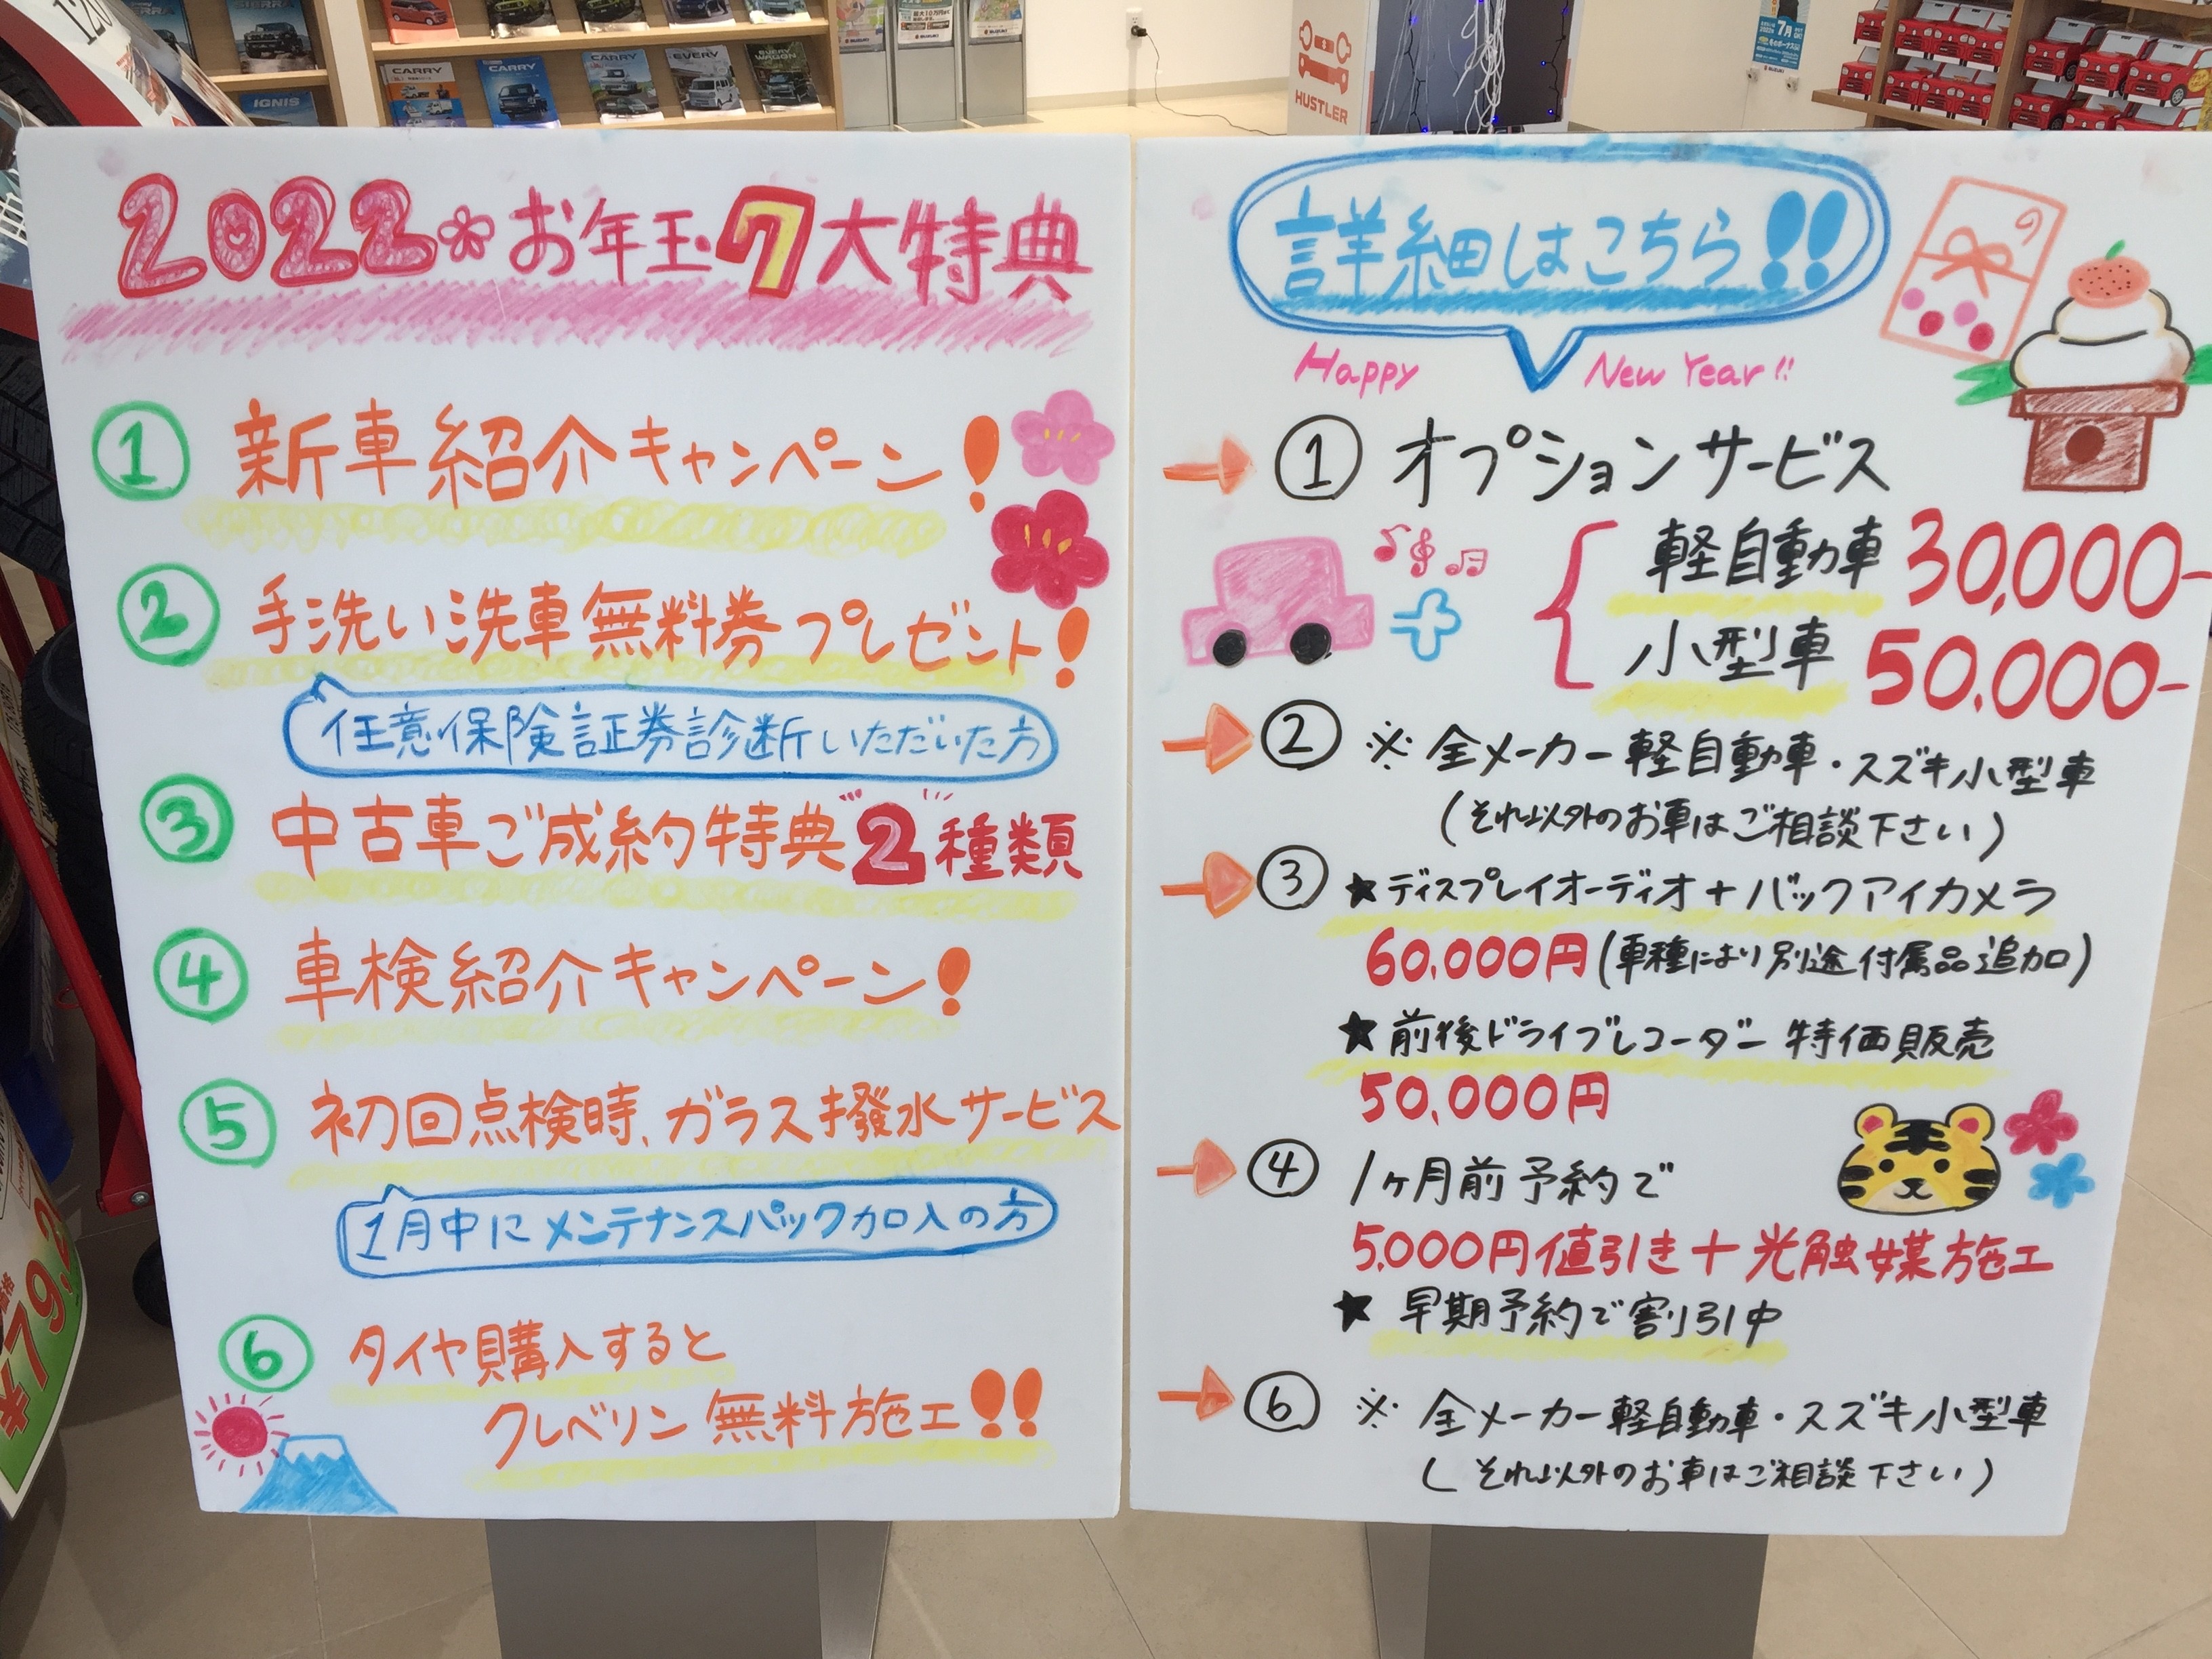 SIERRA
IGNIS
CARRY
CARRY
CARRY
EVERY
EVERY WAGON
HUSTLER
2022 お年玉 7大特典
① 新車紹介キャンペーン!
② 手洗い洗車無料券プレゼント!
任意保険証券診断いただいた方
③ 中古車ご成約特典 2種類
④ 車検紹介キャンペーン!
⑤ 初回点検時、ガラス撥水サービス
1月中にメンテナンスパック加入の方
⑥ タイヤ購入すると
クレベリン無料施工!!
詳細はこちら!!
Happy New Year!!
① オプションサービス
軽自動車 30,000-
小型車 50,000-
② ※全メーカー軽自動車・スズキ小型車
(それ以外のお車はご相談下さい)
③ ★ディスプレイオーディオ+バックアイカメラ
60,000円(車種により別途付属品追加)
★前後ドライブレコーダー特価販売
50,000円
④ 1ヶ月前予約で
5,000円値引き+光触媒施工
★早期予約で割引中
⑥ ※全メーカー軽自動車・スズキ小型車
(それ以外のお車はご相談下さい)